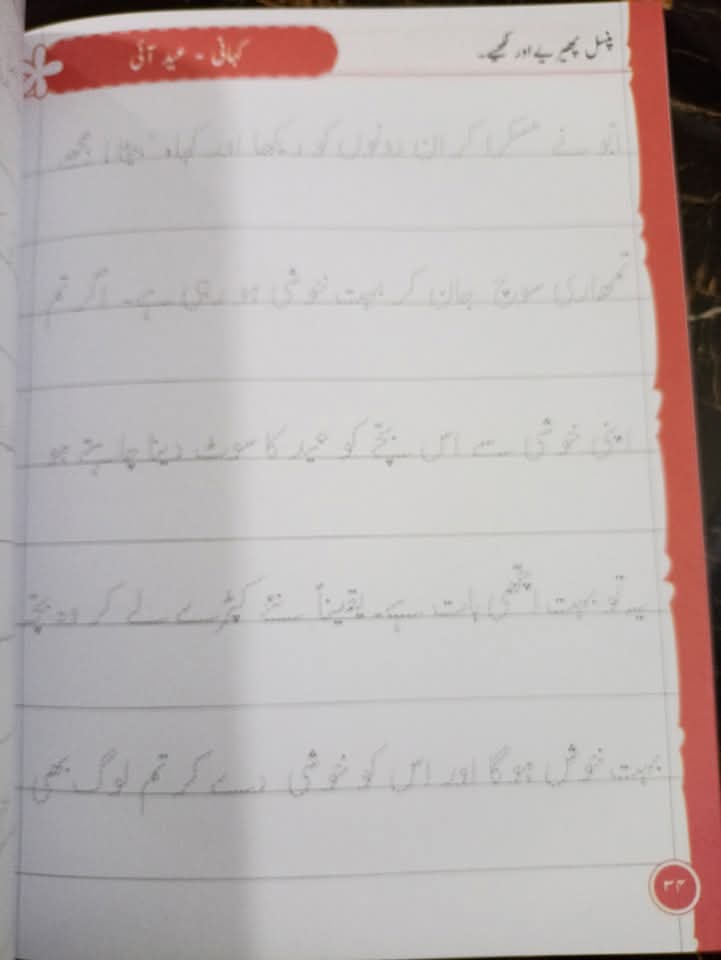 پنسل پھیریے اور لکھیے۔
کہانی - عید آئی
ابّو نے مسکرا کر ان دونوں کو دیکھا اور کہا، "بیٹا! مجھے
تمھاری سوچ جان کر بہت خوشی ہو رہی ہے۔ اگر تم
اپنی خوشی سے اس بچّے کو عید کا سوٹ دینا چاہتے ہو
یہ تو بہت اچّھی بات ہے۔ یقیناً نئے کپڑے لے کر وہ بچّہ
بہت خوش ہوگا اور اس کو خوشی دے کر تم لوگ بھی
۳۴